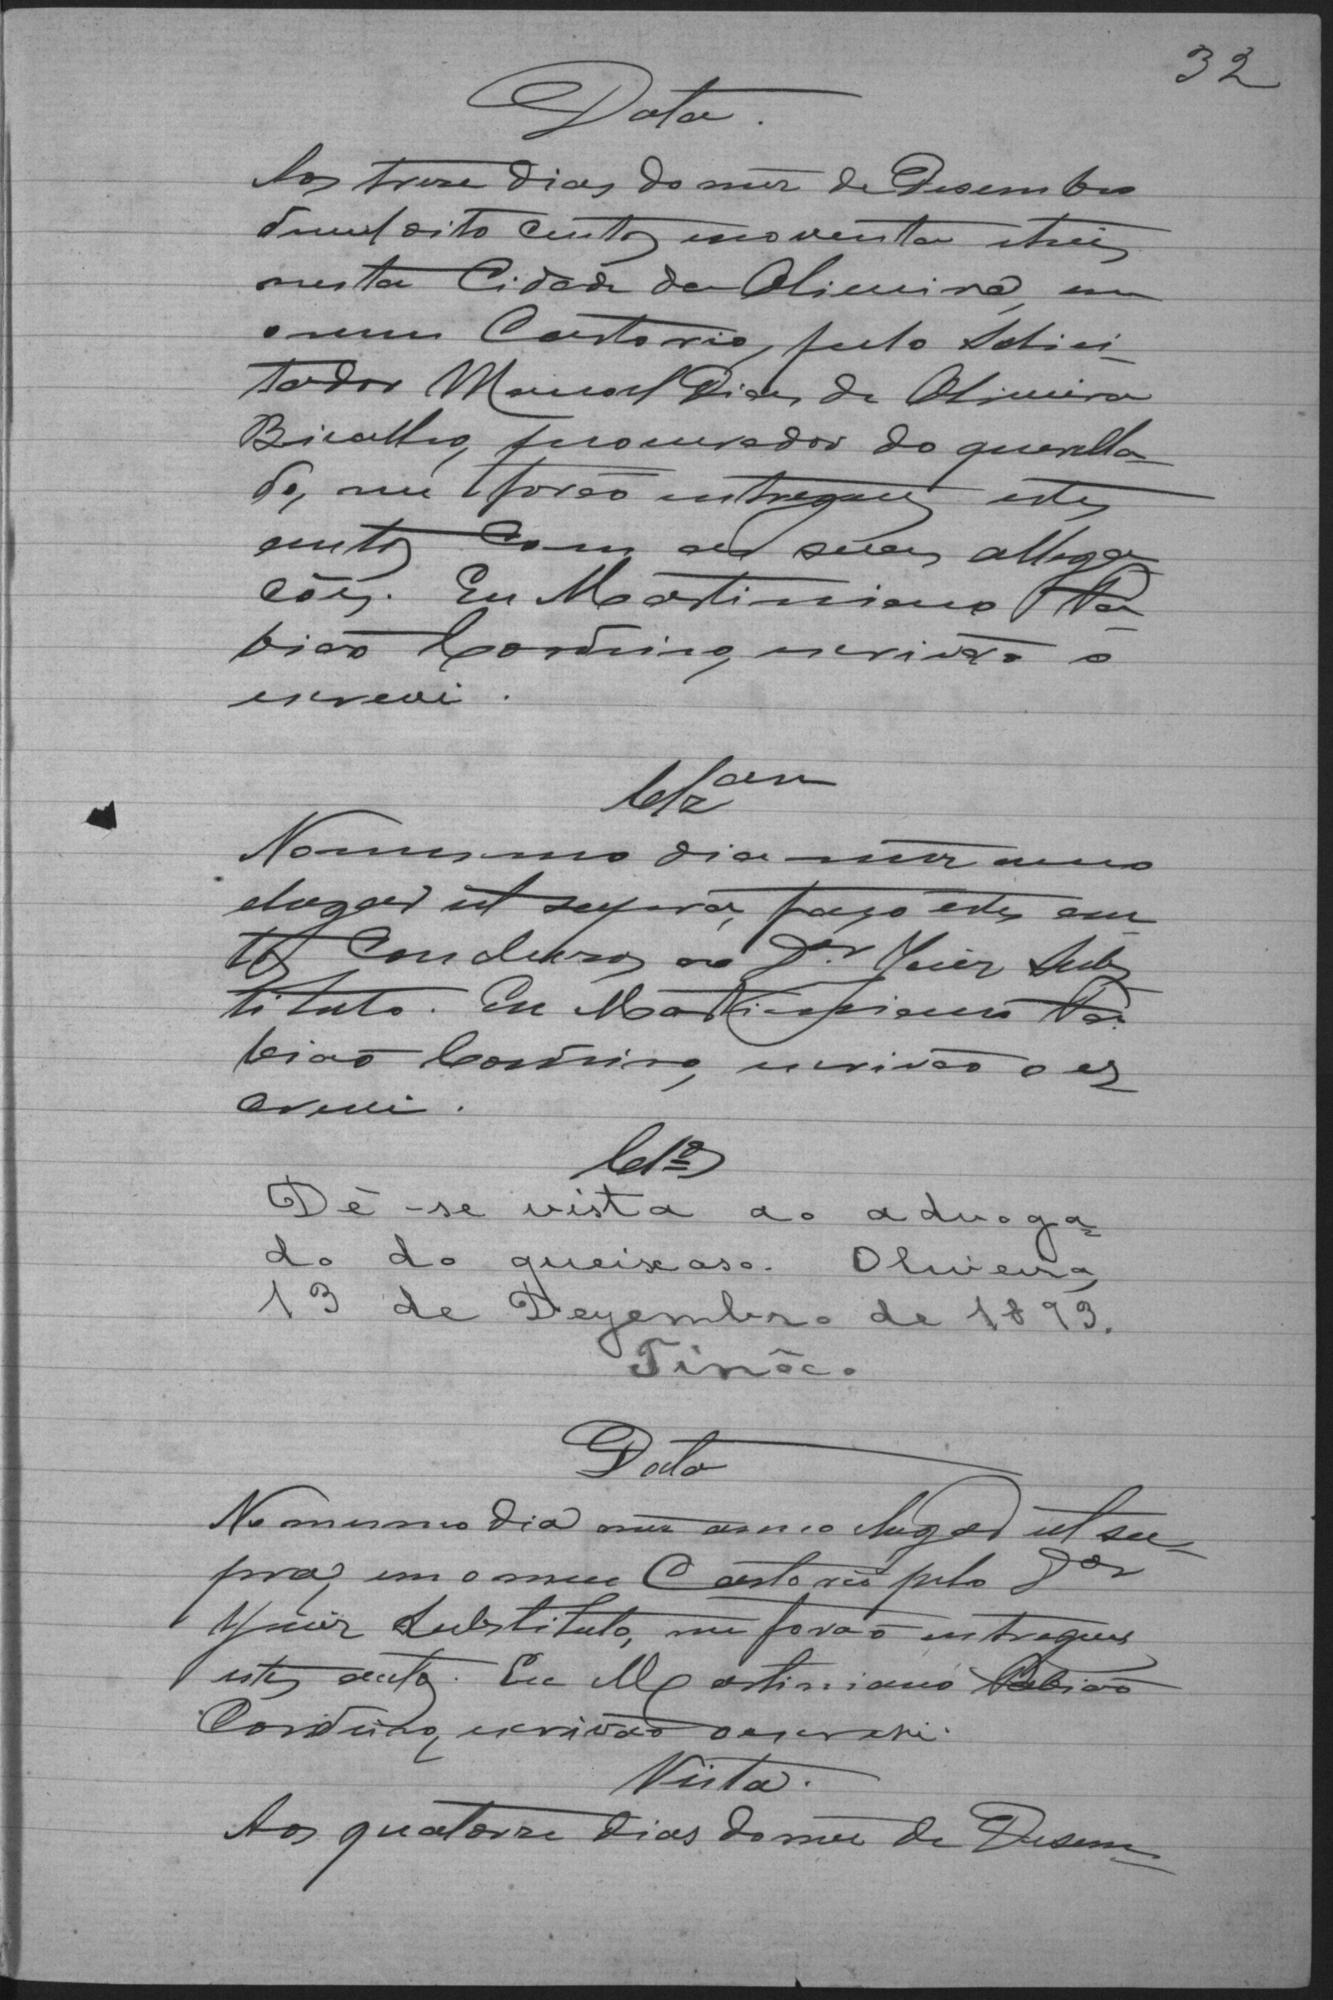 32
Data.
Aos treze dias do mez de Desembro
de mil oito centos e noventa e trez
nesta Cidade da Oliveira, em
o meu Cartorio, pelo Solici-
tador Manoel Dias de Oliveira
Bicalho, procurador do querella-
do, me forão entregues estes
autos com as suas allega-
ções. Eu Martiniano Fa-
bião Cordeiro, escrivão o
escrevi.
Clzam
No mesmo dia mez anno
e lugar ut supra, faço estes au-
tos Concluzos ao Dor Juiz Subs
tituto. Eu Martiniano Fa-
bião Cordeiro, escrivão o es
crevi.
Clos
Dê-se vista ao advoga-
do do queixoso. Oliveira,
13 de Dezembro de 1893.
Tinôco
Data
No mesmo dia mez anno e lugar ut su-
pra, em o meu Cartorio pelo Dor
Juiz Substituto, me forão entregues
estes autos. Eu Martiniano Fabião
Cordeiro, escrivão o escrevi.
Vista.
Aos quatorze dias do mez de Desem-